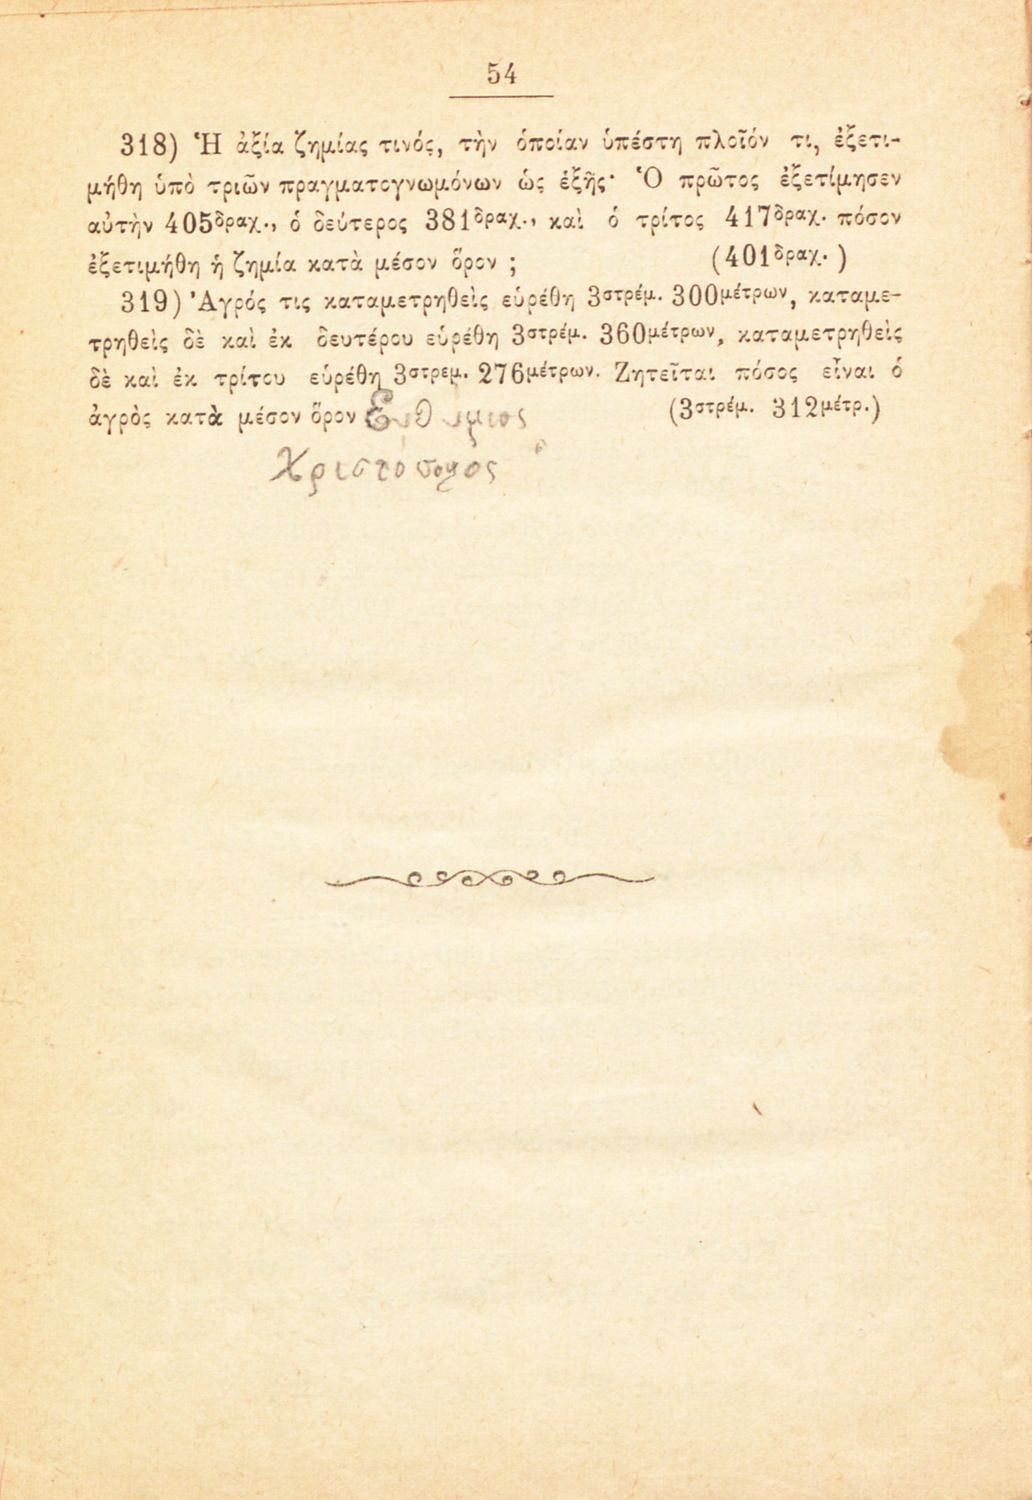 54
318) Ἡ ἀξία ζημίας τινός, τὴν ὁποίαν ὑπέστη πλοῖόν τι, ἐξετι-
μήθη ὑπὸ τριῶν πραγματογνωμόνων ὡς ἑξῆς· Ὁ πρῶτος ἐξετίμησεν
αὐτὴν 405δραχ., ὁ δεύτερος 381δραχ., καὶ ὁ τρίτος 417δραχ. πόσον
ἐξετιμήθη ἡ ζημία κατὰ μέσον ὅρον ; (401δραχ.)
319) Ἀγρός τις καταμετρηθεὶς εὑρέθη 3στρέμ. 300μέτρων, καταμε-
τρηθεὶς δὲ καὶ ἐκ δευτέρου εὑρέθη 3στρέμ. 360μέτρων, καταμετρηθεὶς
δὲ καὶ ἐκ τρίτου εὑρέθη 3στρεμ. 276μέτρων. Ζητεῖται πόσος εἶναι ὁ
ἀγρὸς κατὰ μέσον ὅρον Ευθύμιος (3στρέμ. 312μέτρ.)